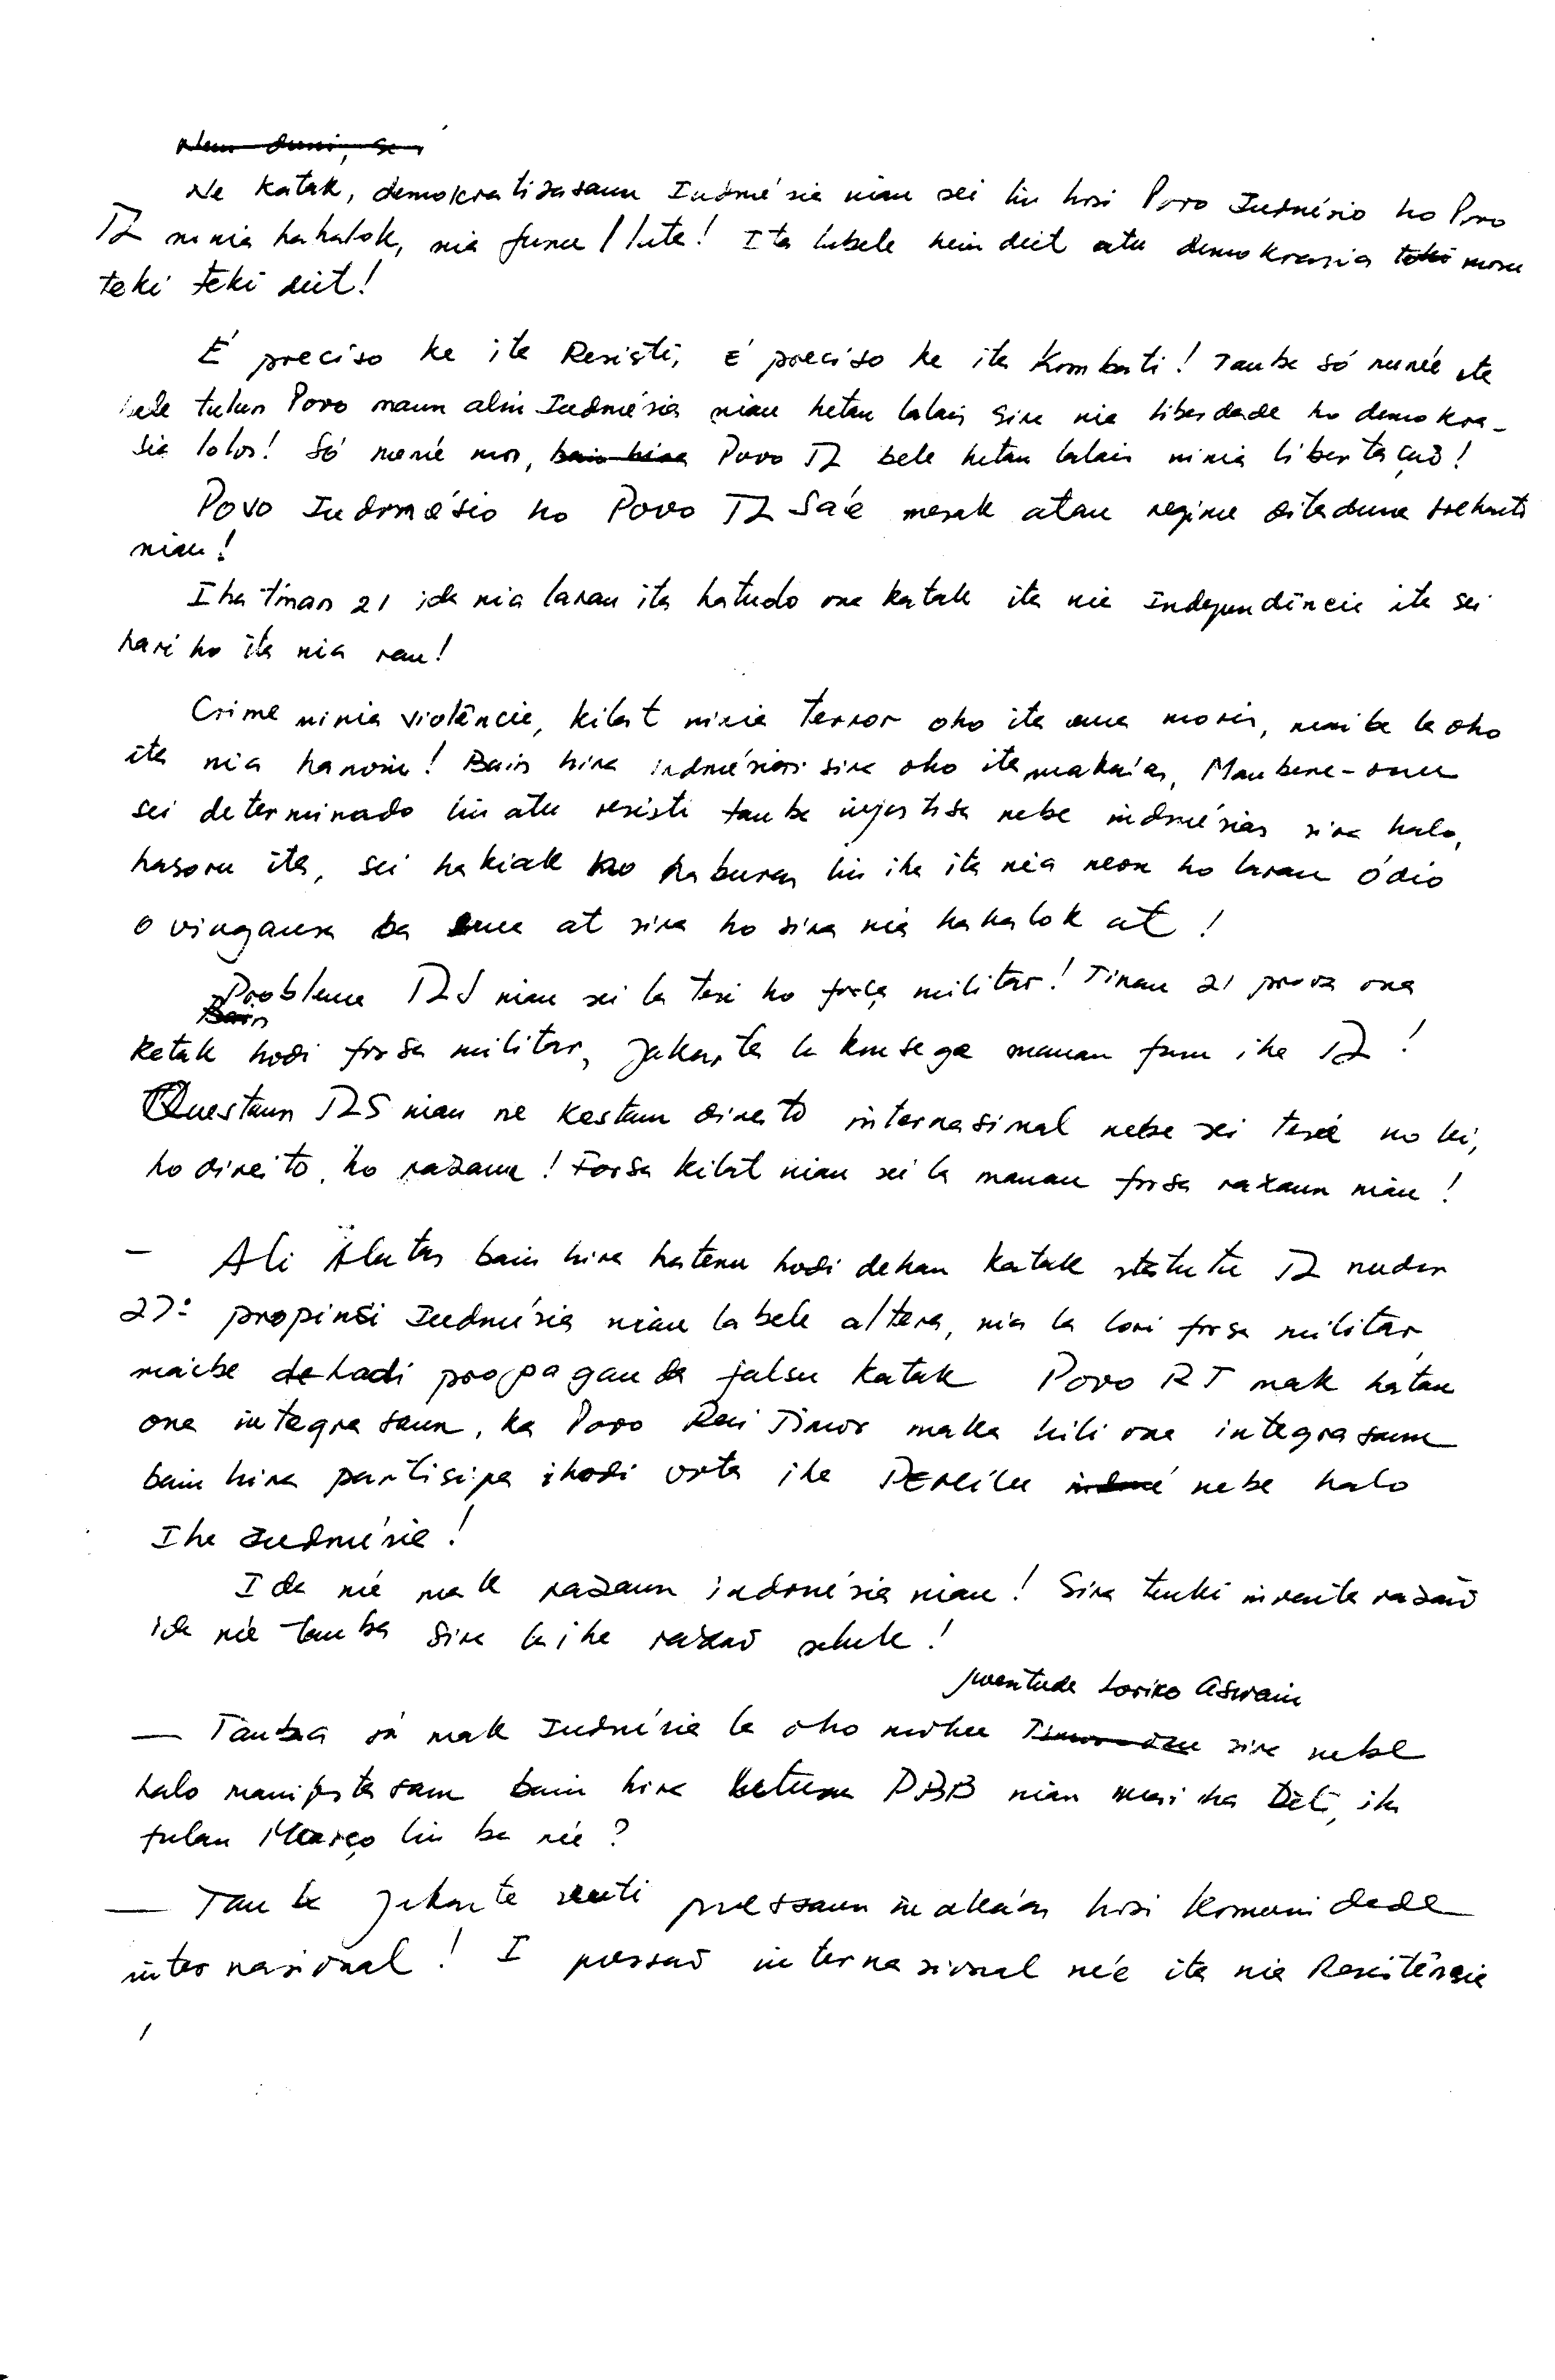 Ne katak, demokratizasaun Indonésia nian sei liu hosi Povo Indonésio ho Povo
TL ninia hahalok, nia funu / luta! Ita labele hein deit atu demokrasia mosu
teki teki deit!
É preciso ke ita Resisti, é preciso ke ita Kombati! Tau ba só nuné'e ita
bele tulun Povo maun alin Indonésia nian hetan lalais sira nia liberdade ho demokra-
sia lolos! Só nuné mos, Povo TL bele hetan lalais ninia libertação!
Povo Indonésio ho Povo TL Sa'e mesak atan regime ditadura Soeharto
nian!
Iha tinan 21 ida nia laran ita hatudo ona katak ita nia Independência ita sei
hari ho ita nia ran!
Crime ninia violência, kilat ninia terror oho ita ema moris, maibe la oho
ita nia hanoin! Bain hira indonésios sira oho ita maka'as, Maubere-oan
sei determinado liu atu resisti tau ba injustisa nebe indonésios sira halo,
hasoru ita, sei hakiak ho haburas liu iha ita nia neon ho laran ódio
o vingansa ba ema at sira ho sira nia hahalok at!
Problema TLS nian sei la tesi ho força militar! Tinan 21 prova ona
katak hodi forsa militar, Jakarta la konsege manan funu iha TL!
Questaun TLS nian ne kestaun direito internasional nebe sei tesi ho lei,
ho direito, ho razaun! Forsa kilat nian sei la manan forsa razaun nian!
— Ali Alatas bain hira hatenu hodi dehan katak statutu TL nudar
27ª propinsi Indonésia nian labele altera, nia la lori forsa militar,
maibe hodi propaganda falsu katak Povo RT mak hatan
ona integrasaun, ka Povo Rai Timor maka hili ona integrasaun
bain hira partisipa ihodi vota iha Pemilu nebe halo
Iha Indonésia!
Ida né mak razaun indonésia nian! Sira tenki inventa razaõ
ida né tau ba sira la iha razaõ seluk!
Juventude Loriko Aswain
— Tau ba sá mak Indonésia la oho mohu sira nebe
halo manifestasaun bain hira ketua PBB nian mai iha Dili, iha
fulan Março liu ba né'e?
— Tau ba Jakarta senti pressaun maka'as hosi komunidade
internasional! I pressaõ internasional né'e ita nia Resistência
/